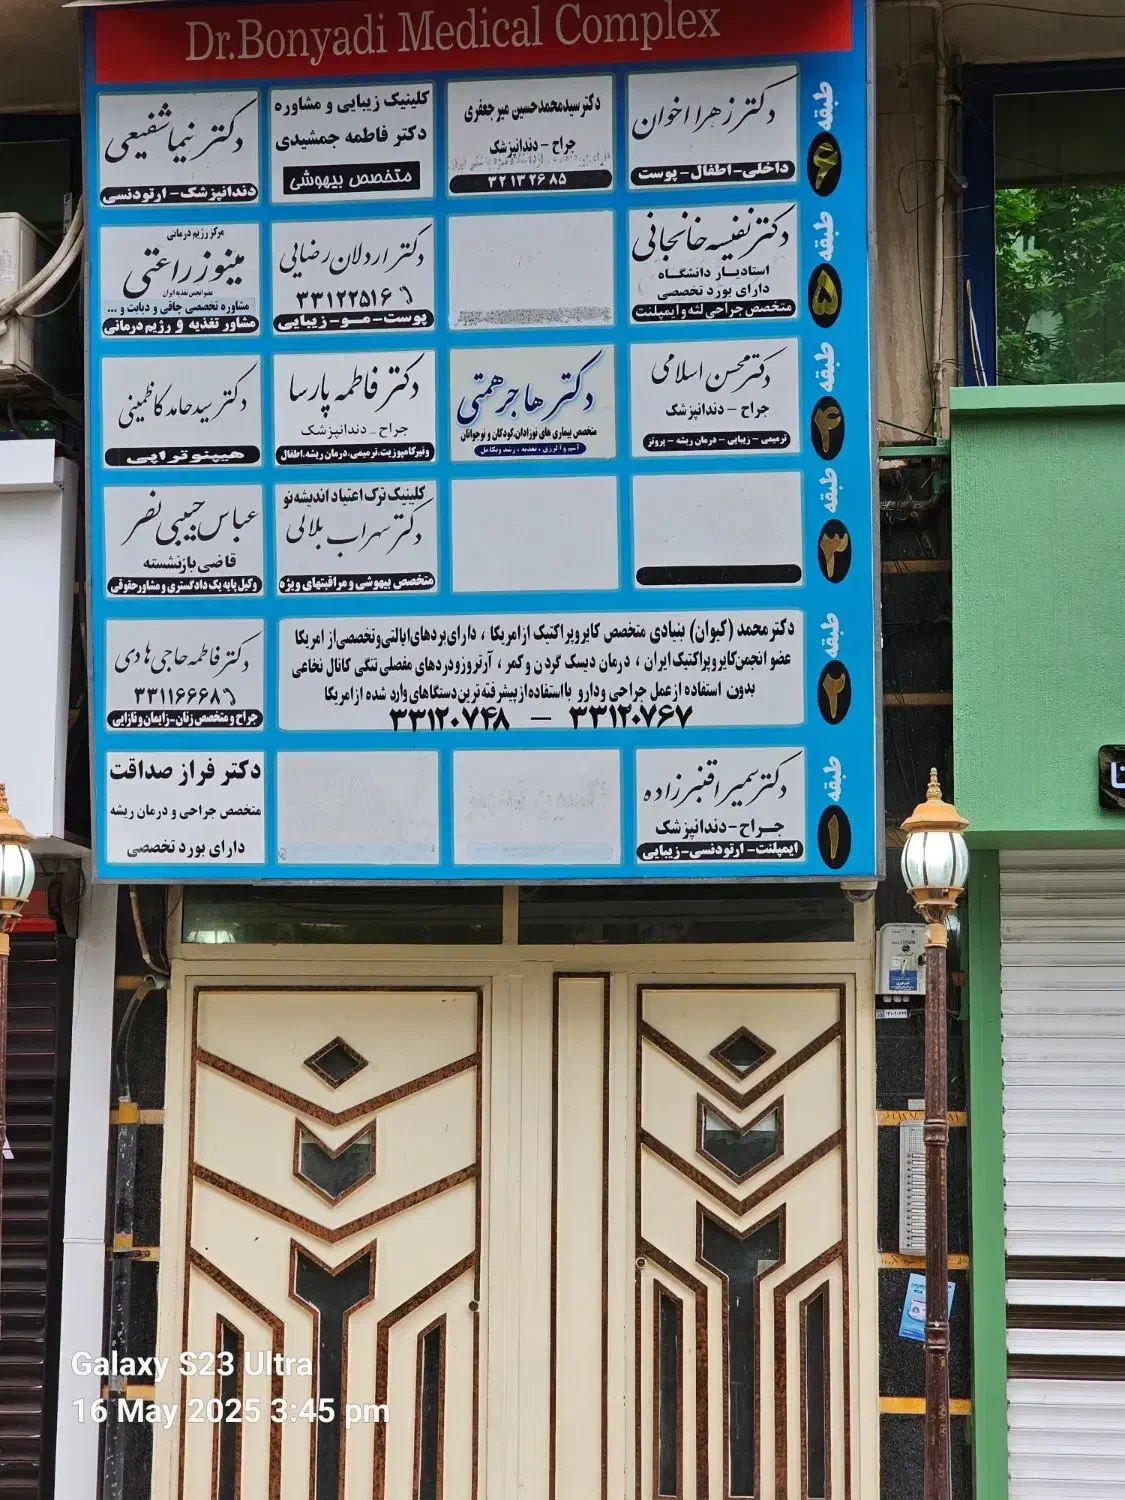 Dr.Bonyadi Medical Complex
طبقه ۶
دکتر زهرا اخوان
داخلی-اطفال-پوست
دکتر سیدمحمدحسین میرجعفری
جراح - دندانپزشک
۳۲۱۳۲۶۸۵
کلینیک زیبایی و مشاوره
دکتر فاطمه جمشیدی
متخصص بیهوشی
دکتر نیما شفیعی
دندانپزشک- ارتودنسی
طبقه ۵
دکتر نفیسه خانجانی
استادیار دانشگاه
دارای بورد تخصصی
متخصص جراحی لثه و ایمپلنت
دکتر اردلان رضایی
۳۳۱۲۲۵۱۶
پوست-مو-زیبایی
مرکز رژیم درمانی
مینو زراعتی
عضو انجمن تغذیه ایران
مشاوره تخصصی چاقی و دیابت و ...
مشاور تغذیه و رژیم درمانی
طبقه ۴
دکتر محسن اسلامی
جراح - دندانپزشک
ترمیمی - زیبایی - درمان ریشه - پروتز
دکتر هاجر همتی
متخصص بیماری های نوزادان،کودکان و نوجوانان
آسم و آلرژی ، تغذیه ، رشد وتکامل
دکتر فاطمه پارسا
جراح - دندانپزشک
ونیرکامپوزیت،ترمیمی،درمان ریشه،اطفال
دکتر سید حامد کاظمینی
هیپنوتراپی
طبقه ۳
کلینیک ترک اعتیاد اندیشه نو
دکتر سهراب بلالی
متخصص بیهوشی و مراقبتهای ویژه
عباس حبیبی نضر
قاضی بازنشسته
وکیل پایه یک دادگستری و مشاور حقوقی
طبقه ۲
دکتر محمد (کیوان) بنیادی متخصص کایروپراکتیک از امریکا ، دارای بردهای ایالتی و تخصصی از امریکا
عضو انجمن کایروپراکتیک ایران ، درمان دیسک گردن و کمر ، آرتروز و دردهای مفصلی تنگی کانال نخاعی
بدون استفاده از عمل جراحی و دارو با استفاده از پیشرفته ترین دستگاهای وارد شده از امریکا
۳۳۱۲۰۷۴۸ - ۳۳۱۲۰۷۶۷
دکتر فاطمه حاجی هادی
۳۳۱۱۶۶۶۸
جراح و متخصص زنان-زایمان و نازایی
طبقه ۱
دکتر سمیرا قنبرزاده
جراح-دندانپزشک
ایمپلنت- ارتودنسی-زیبایی
دکتر فراز صداقت
متخصص جراحی و درمان ریشه
دارای بورد تخصصی
Galaxy S23 Ultra
16 May 2025 3:45 pm